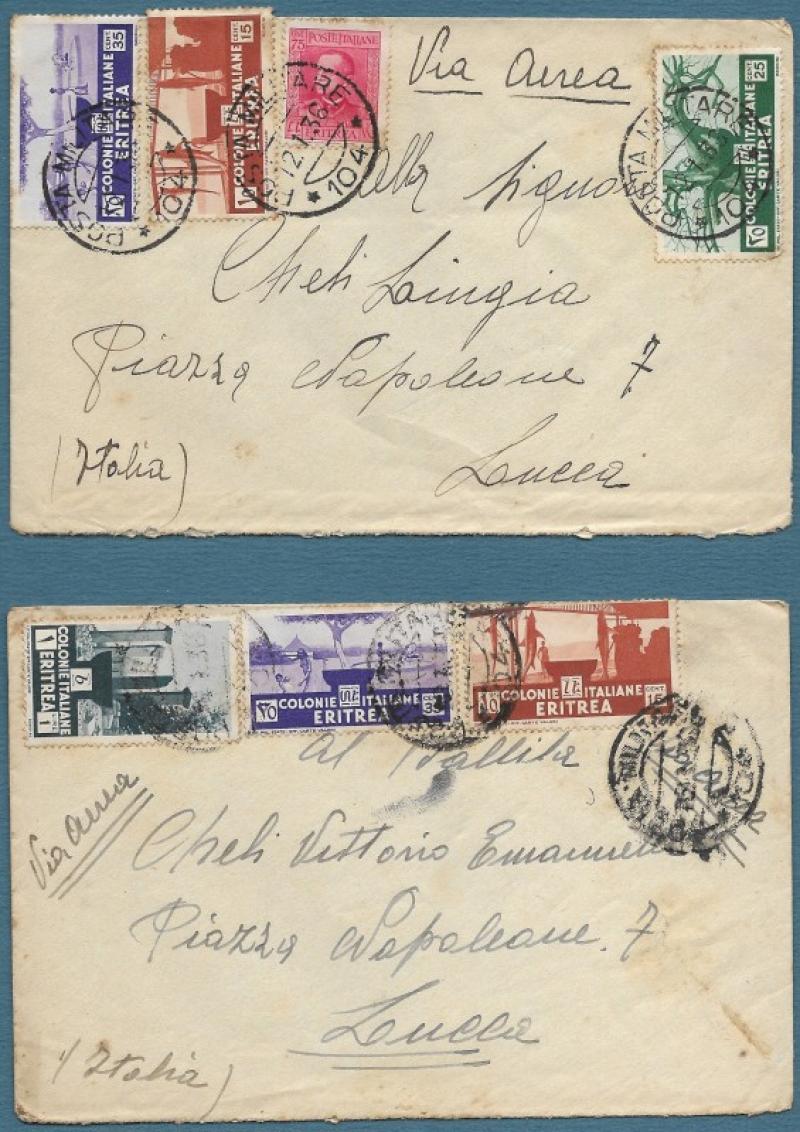 CENT. 35
COLONIE ITALIANE
ERITREA
CENT. 15
COLONIE ITALIANE
ERITREA
CENT 75
POSTE ITALIANE
ERITREA
CENT 25
COLONIE ITALIANE
ERITREA
POSTA MILITARE
104
POSTA MILITARE * 104 *
12.1.36
POSTA MILITARE
Via Aerea
Alla Signora
Cheli Lingia
Piazza Napoleone 7
(Italia)
Lucca
COLONIE ITALIANE
ERITREA
1
COLONIE ITALIANE
35
ERITREA
COLONIE ITALIANE
CENT
15
ERITREA
Al Ballila
Via aerea
Cheli Vittorio Emanuele
Piazza Napoleone. 7
Lucca
(Italia)